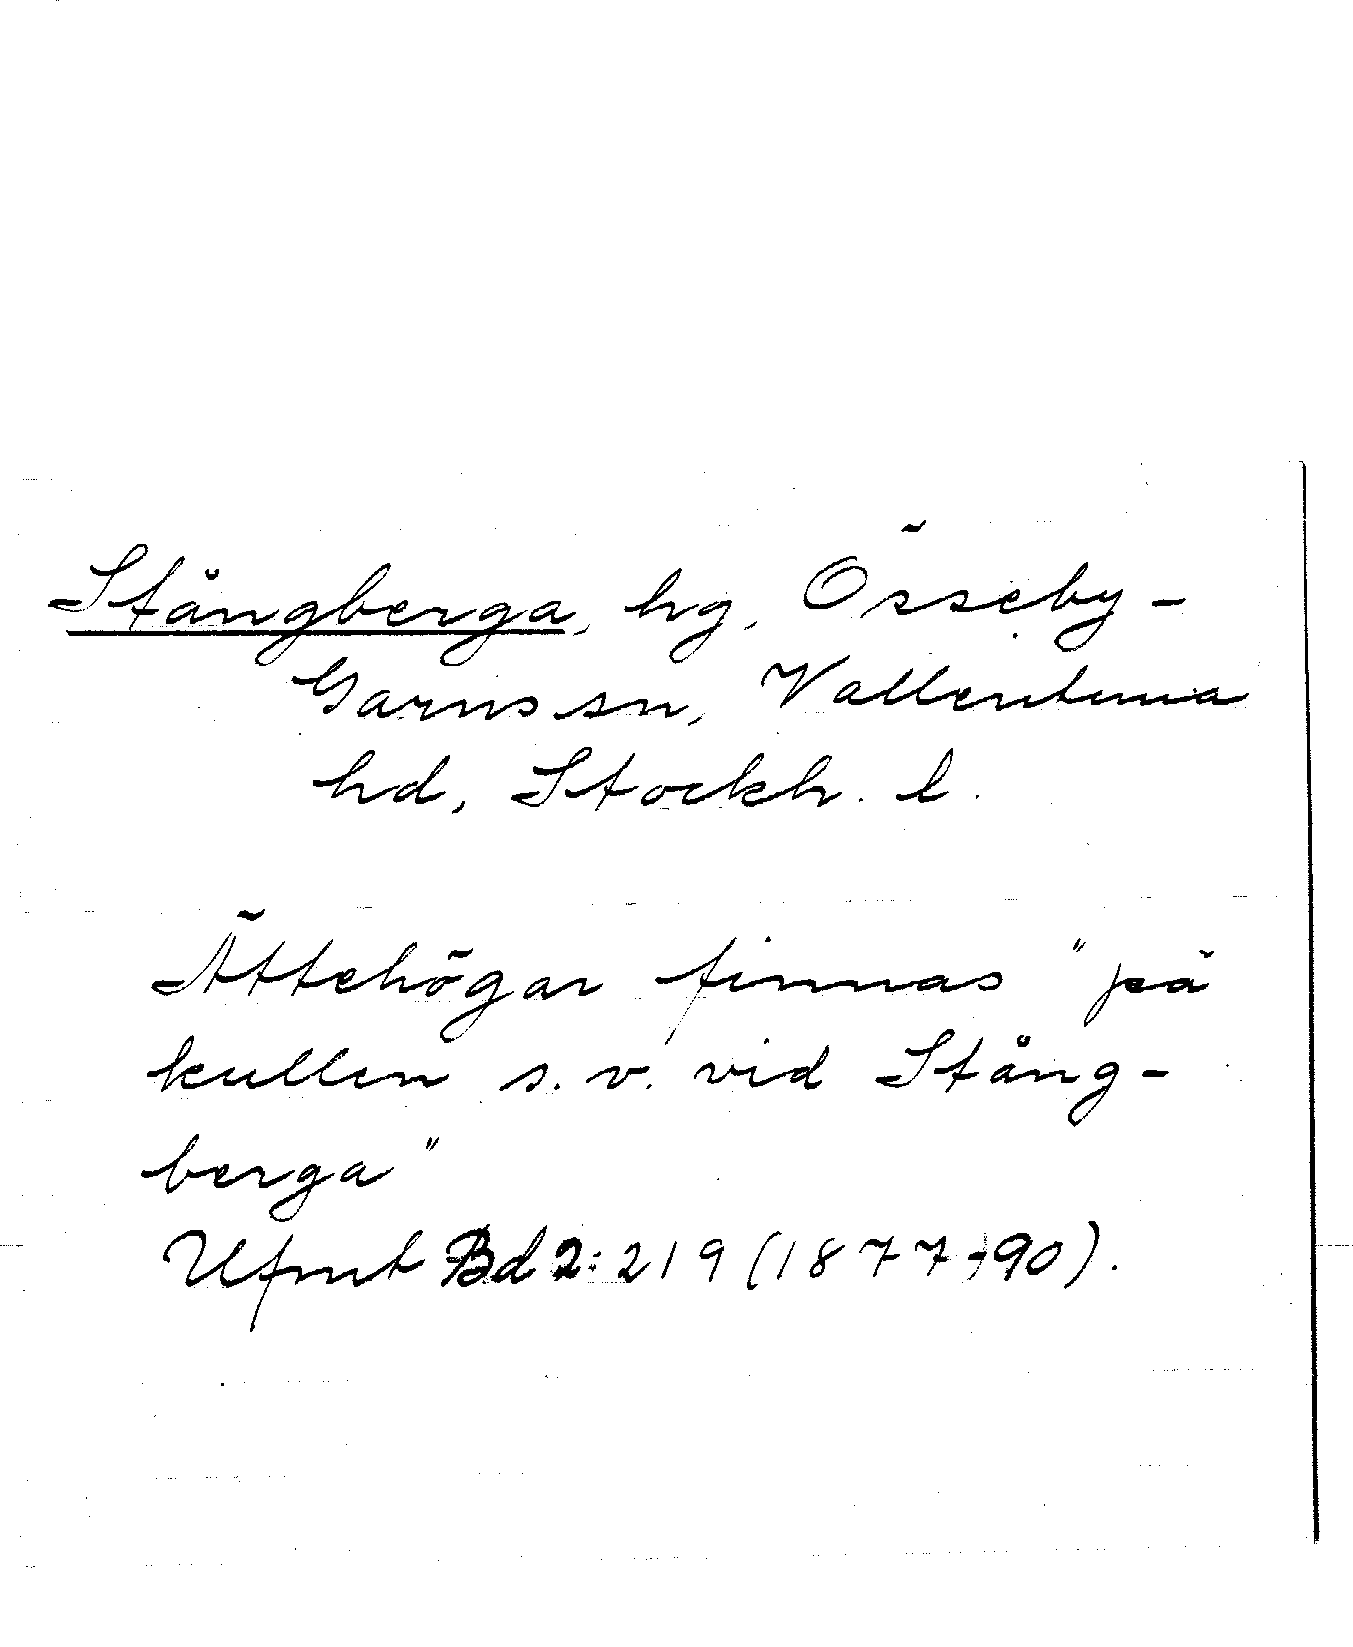 Stångberga, hg, Össeby-
Garns sn, Vallentuna
hd, Stockh. l.
Ättehögar finnas "på
kullen s. v. vid Stång-
berga"
Ufmt Bd 2: 219 (1877-90).